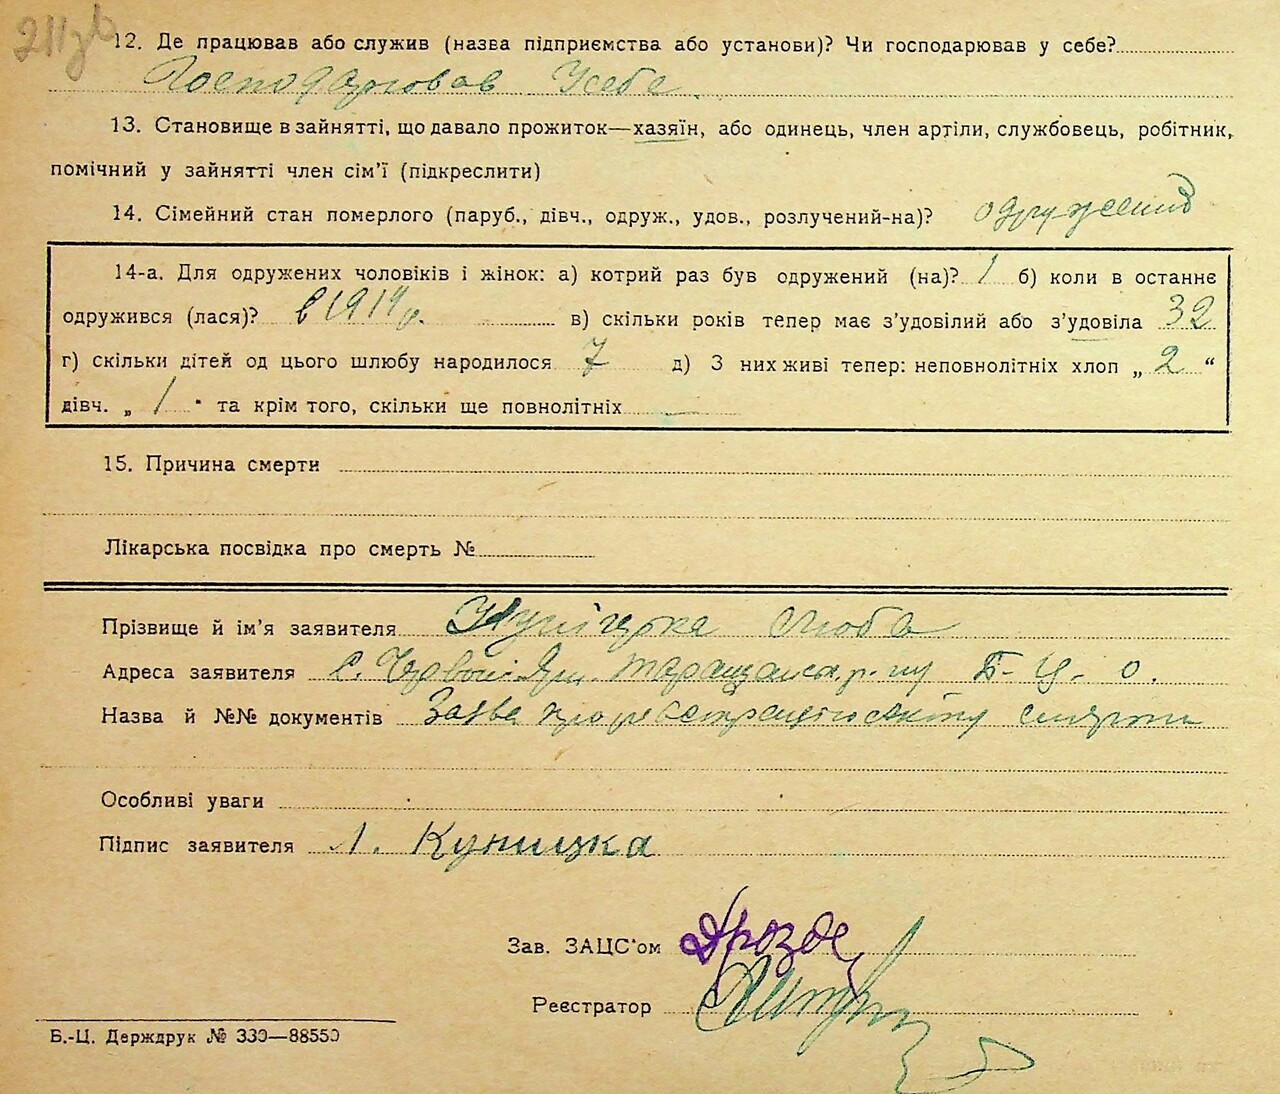 211зв
12. Де працював або служив (назва підприємства або установи)? Чи господарював у себе?
Господарював Усебе
13. Становище в зайнятті, що давало прожиток—хазяїн, або одинець, член артіли, службовець, робітник,
помічний у зайнятті член сім'ї (підкреслити)
14. Сімейний стан померлого (паруб., дівч., одруж., удов., розлучений-на)? одружений
14-а. Для одружених чоловіків і жінок: а) котрий раз був одружений (на)? 1 б) коли в останнє
одружився (лася)? в 1914 р. в) скільки років тепер має з'удовілий або з'удовіла 32
г) скільки дітей од цього шлюбу народилося 7 д) З них живі тепер: неповнолітніх хлоп „ 2 “
дівч. „ 1 " та крім того, скільки ще повнолітніх —
15. Причина смерти
Лікарська посвідка про смерть №
Прізвище й ім'я заявителя Куніцька Люба
Адреса заявителя С. Червоні Яри. Таращанськ. р-ну Б-Ц. о.
Назва й №№ документів Заява про реєстрацію акту смерти
Особливі уваги
Підпис заявителя Л. Куницка
Зав. ЗАЦС'ом
Реєстратор
Б.-Ц. Держдрук № 330—88550